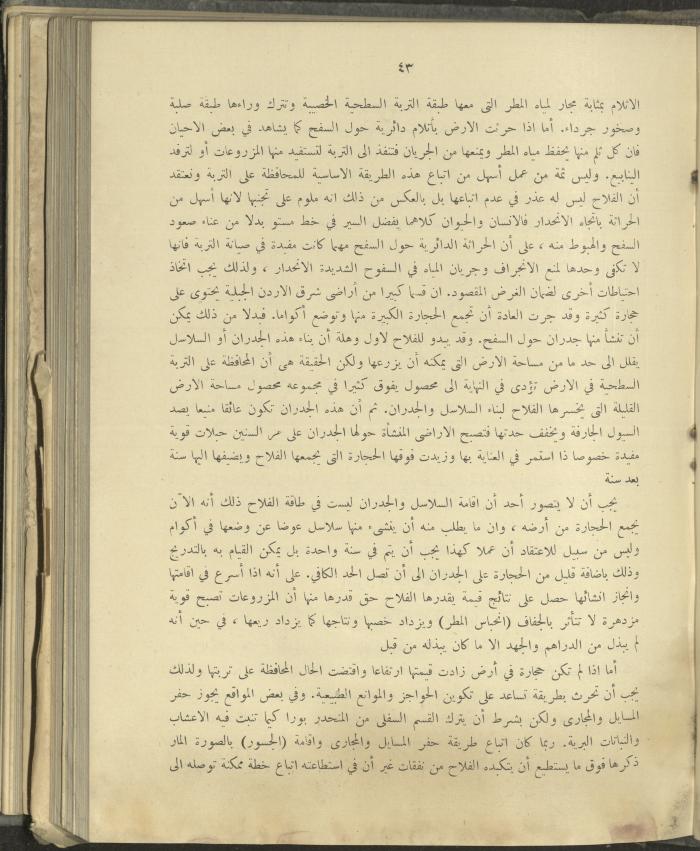 ٤٣
الاتلام بمثابة مجار لمياه المطر التى معها طبقة التربة السطحية الخصيبة وتترك وراءها طبقة صلبة
وصخور جرداء. أما اذا حرثت الارض بأتلام دائرية حول السفح كما يشاهد في بعض الاحيان
فان كل تلم منها يحفظ مياه المطر ويمنعها من الجريان فتنفذ الى التربة لتستفيد منها المزروعات أو لترفد
الينابيع. وليس ثمة من عمل أسهل من اتباع هذه الطريقة الاساسية للمحافظة على التربة ونعتقد
أن الفلاح ليس له عذر في عدم اتباعها بل بالعكس من ذلك انه ملوم على تجنبها لانها أسهل من
الحراثة باتجاه الانحدار فالانسان والحيوان كلاهما يفضل السير في خط مستو بدلا من عناء صعود
السفح والهبوط منه ، على أن الحراثة الدائرية حول السفح مهما كانت مفيدة في صيانة التربة فانها
لا تكفى وحدها لمنع الانجراف وجريان المياه في السفوح الشديدة الانحدار ، ولذلك يجب اتخاذ
احتياطات أخرى لضمان الغرض المقصود. ان قسما كبيرا من أراضى شرق الاردن الجبلية يحتوى على
حجارة كثيرة وقد جرت العادة أن تجمع الحجارة الكبيرة منها وتوضع أكواما. فبدلا من ذلك يمكن
أن تنشأ منها جدران حول السفح. وقد يبدو للفلاح لاول وهلة أن بناء هذه الجدران أو السلاسل
يقلل الى حد ما من مساحة الارض التى يمكنه أن يزرعها ولكن الحقيقة هى أن المحافظة على التربة
السطحية في الارض تؤدى في النهاية الى محصول يفوق كثيرا في مجموعه محصول مساحة الارض
القليلة التى يخسرها الفلاح لبناء السلاسل والجدران. ثم أن هذه الجدران تكون عائقا منيعا يصد
السيول الجارفة ويخفف حدتها فتصبح الاراضى المنشأة حولها الجدران على مر السنين حبلات قوية
مفيدة خصوصا ذا استمر في العناية بها وزيدت فوقها الحجارة التى يجمعها الفلاح ويضيفها اليها سنة
بعد سنة
يجب أن لا يتصور أحد أن اقامة السلاسل والجدران ليست في طاقة الفلاح ذلك أنه الآن
يجمع الحجارة من أرضه ، وان ما يطلب منه أن ينشىء منها سلاسل عوضا عن وضعها في أكوام
وليس من سبيل للاعتقاد أن عملا كهذا يجب أن يتم في سنة واحدة بل يمكن القيام به بالتدريج
وذلك باضافة قليل من الحجارة على الجدران الى أن تصل الحد الكافي. على أنه اذا أسرع في اقامتها
وانجاز انشائها حصل على نتائج قيمة يقدرها الفلاح حق قدرها منها أن المزروعات تصبح قوية
مزدهرة لا تتأثر بالجفاف (انحباس المطر) ويزداد خصبها ونتاجها كما يزداد ريعها ، في حين أنه
لم يبذل من الدراهم والجهد الا ما كان يبذله من قبل
أما اذا لم تكن حجارة في أرض زادت قيمتها ارتفاعا واقتضت الحال المحافظة على تربتها ولذلك
يجب أن تحرث بطريقة تساعد على تكوين الحواجز والموانع الطبيعية. وفي بعض المواقع يجوز حفر
المسايل والمجارى ولكن بشرط أن يترك القسم السفلى من المنحدر بورا كيما تنبت فيه الاعشاب
والنباتات البرية. ربما كان اتباع طريقة حفر المسايل والمجارى واقامة (الجسور) بالصورة المار
ذكرها فوق ما يستطيع أن يتكبده الفلاح من نفقات غير أن في استطاعته اتباع خطة ممكنة توصله الى